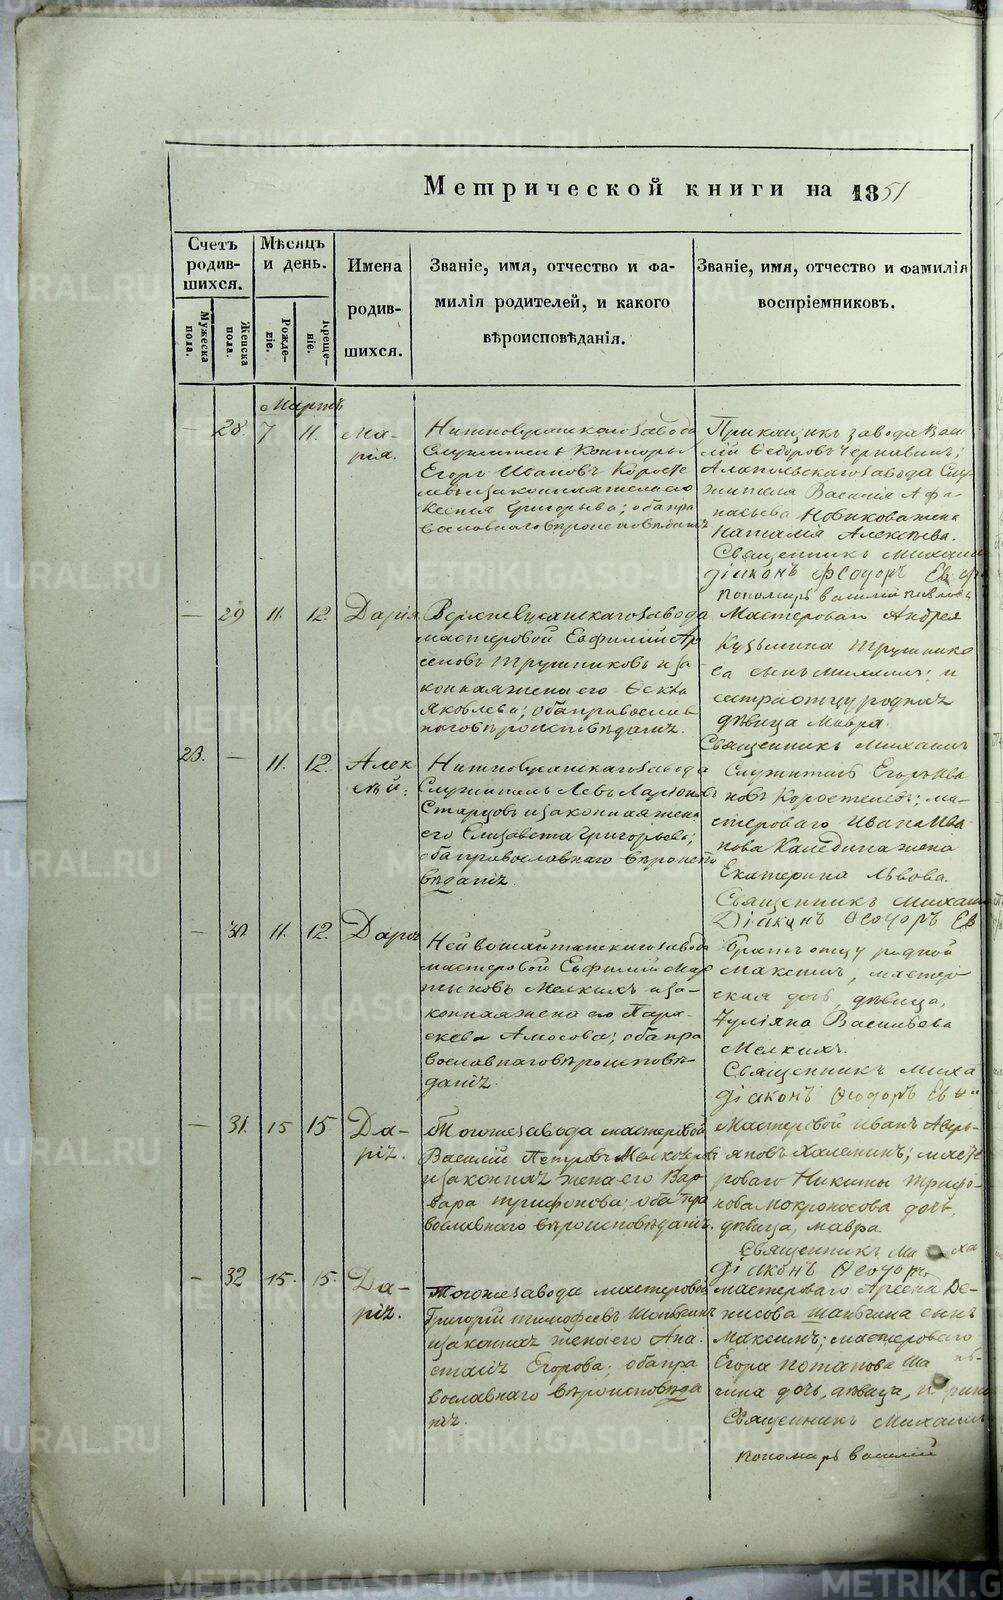 Метрической книги на 1851
Счетъ родив-шихся.
Мѣсяцъ и день.
Имена родив-шихся.
Званіе, имя, отчество и фа-
милія родителей, и какого
вѣроисповѣданія.
Званіе, имя, отчество и фамилія
воспріемниковъ.
Мужеска пола.
Женска пола.
Рожде-ніе.
Креще-ніе.
Мартъ
— 28. 7 11. Ма-
рія.
служитель Конторы
Егоръ Ивановъ Коросте
левъ и законная жена его
Ксенія Григорьева; оба пра
вославнаго вѣроисповѣданія
Прикащикъ завода Васи
лій Ѳедоровъ Чернавинъ;
Алапаевскаго завода слу-
жителя Василія Афа-
насьева Новикова жена
Наталія Алексѣева.
Священникъ Михаил
Діаконъ Феодоръ Ев
Пономарь Василій
— 29 11. 12. Дарія
завода
мастеровой Евфимій Ар
сеновъ Трушниковъ и за-
конная жена его
Яковлева; оба православ
наго вѣроисповѣданія.
Мастероваго Андрея
Кузьмина Трушнико
ва сынъ Михаилъ; и
сестра отцу родная
дѣвица Мавра.
Священникъ Михаил
23. — 11. 12. Алек
сѣй.
завода
служитель Левъ Ларіоновъ
Старцовъ и законная жена
его Елизавета Григорьева;
оба православнаго вѣроиспо
вѣданія.
Служитель Егоръ Ива
новъ Коростелевъ; ма-
стероваго Ивана Ива
нова Каледина жена
Екатерина Львова.
Священникъ Михаил
Діаконъ Феодоръ Ев
— 30. 11. 12. Дарія
Нейвошайтанскаго завода
мастеровой Евфимій Мар
тыновъ Мелкихъ и за-
конная жена его Пара-
скева Амосова; оба пра
вославнаго вѣроисповѣ-
данія.
Братъ отцу родной
Максимъ, мастеро-
ская дочь, дѣвица,
Іуліяна Васильева
Мелкихъ.
Священникъ Миха
Діаконъ Феодоръ Ев
— 31. 15 15 Да-
рія.
Тогоже завода мастеровой
Василій Петровъ
и законная жена его Вар
вара Трифонова; оба пра
вославнаго вѣроисповѣданія.
Мастеровой Иванъ Авер-
яновъ Халеминъ; масте
роваго Никиты Трифо-
нова Мокроносова дочь,
дѣвица, Мавра
Священникъ Миха
Діаконъ Феодоръ
— 32 15. 15. Да-
рія.
Тогоже завода мастеровой
Григорій Тимофеевъ
и законная жена его Ана
стасія Егорова; оба пра
вославнаго вѣроисповѣда
нія.
мастероваго Арсена Де-
нисова сынъ
Максимъ; мастероваго
Егора Потапова
дочь, дѣвица,
Священникъ Михаил
Пономарь Василій
METRIKI.GASO-URAL.RU